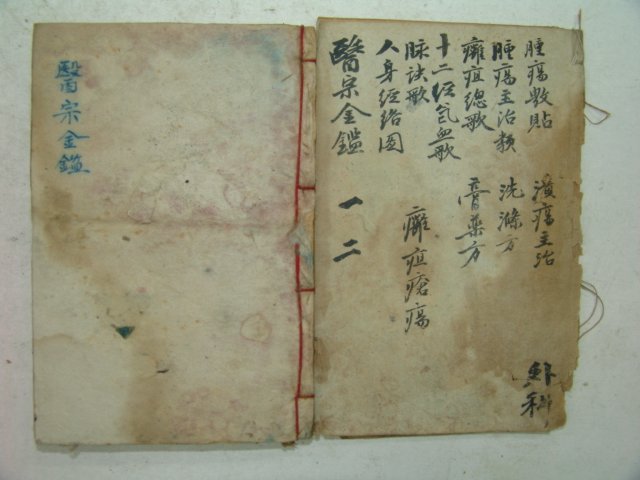 醫宗金鑑
腫瘍敷貼　潰瘍主治
腫瘍主治類　洗滌方
癰疽總歌　膏藥方
十二經氣血歌
脉訣歌　癰疽瘡瘍
人身經絡圖
醫宗金鑑　一二
外科